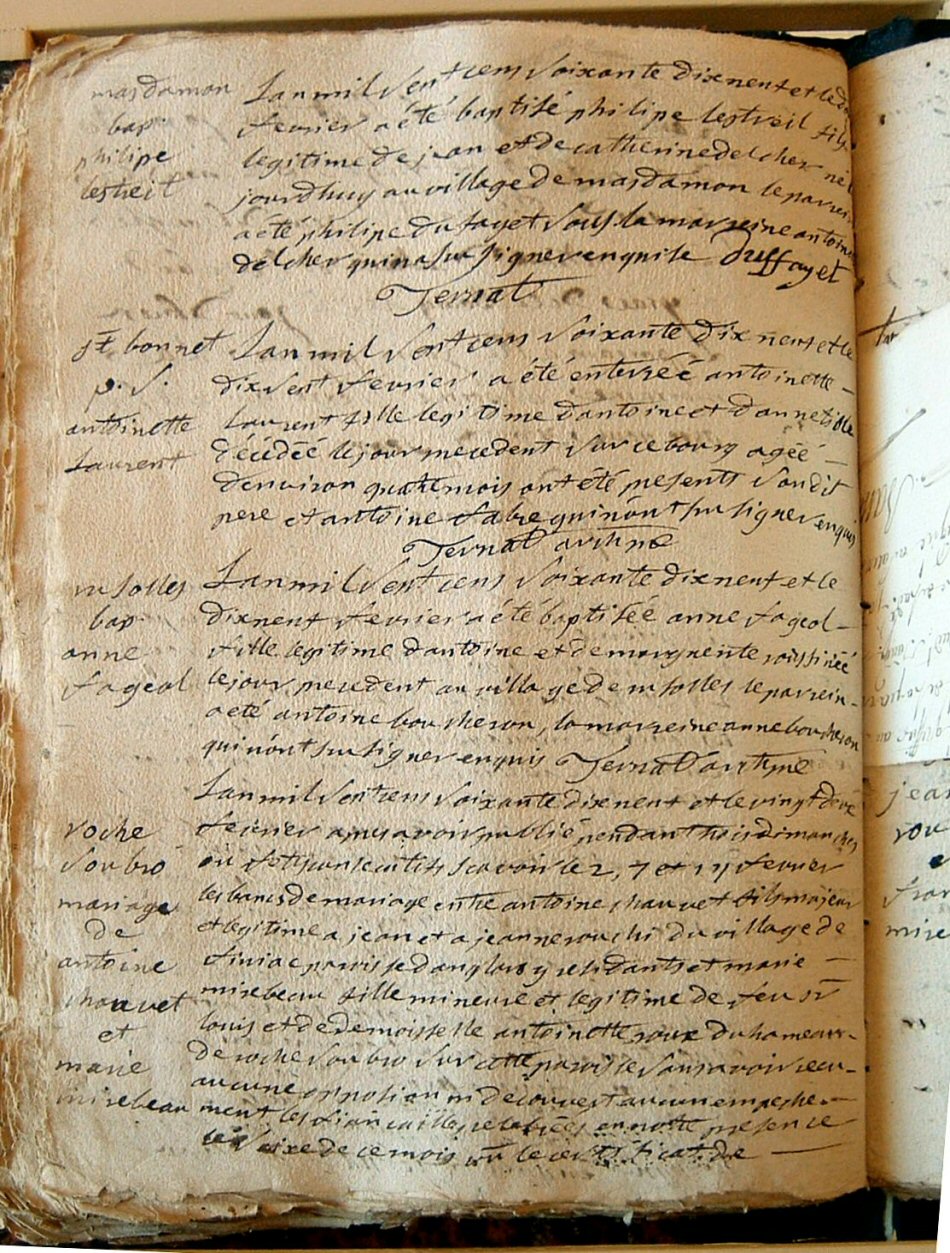 masdamon
bap.
philipe
lestreit
Lan mil sept cens soixante dix neuf et le
fevrier a été baptisé philipe lestreit fils
legitime de jean et de catherine delcher né
jourdhuy au village de masdamon le parrein
a été philipe dufayet sous. la marreine antoine
delcher qui na su signer enquise Duffayet
Ternat
st bonnet
p. s.
antoinette
Laurent
Lan mil sept cens soixante dix neuf et le
dix sept fevrier a été enterrée antoinette
Laurent fille legitime dantoine et dannetille
décédée le jour precedent sur ce bourg agéé
denviron quatre mois ont été presents sondit
pere et antoine fabre qui nont su signer enquis
Ternat archpre
bap.
anne
fageol
Lan mil sept cens soixante dix neuf et le
dix neuf fevrier a été baptisée anne fageol
fille legitime dantoine et de marguerite
le jour precedent au village de le parrein
a été antoine boucheron, la marreine anne boucheron
qui nont su signer enquis Ternat archpre
roche
soubro
mariage
de
antoine
chauvet
et
marie
mirebeau
Lan mil sept cens soixante dix neuf et le vingt
fevrier apres avoir publié pendant trois dimanches
ou fetes consecutifs scavoir le 2, 7 et 14 fevrier
les bancs de mariage entre antoine chauvet fils majeur
et legitime a jean et a jeanne du village de
paroisse danglars y residants et marie
mirebeau fille mineure et legitime de feu sr
louis et de demoisselle antoinette roux du hameau
de roche soubro sur cette paroisse sans avoir recu
aucune opposition ni decouvert aucun empeche
ment, les fiancailles celebrées en notre presence
le seize de ce mois vu le certificat de